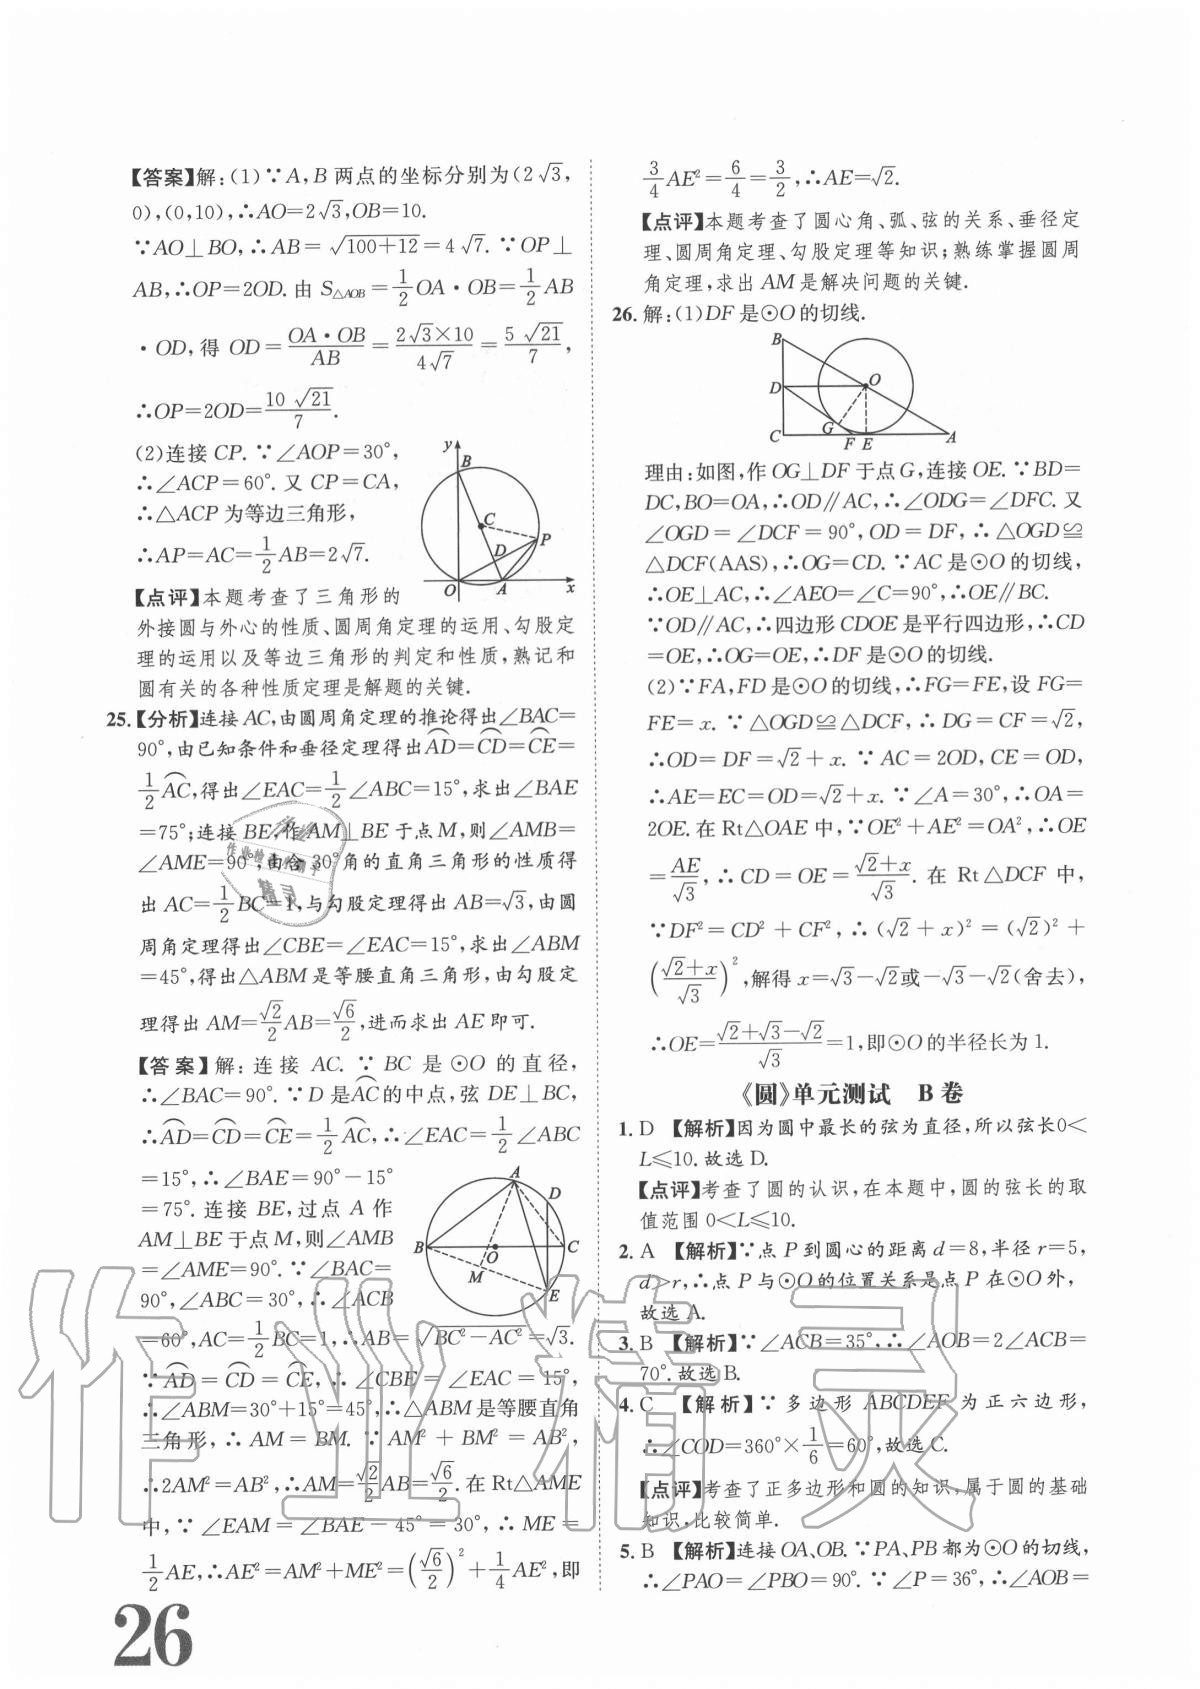 【答案】解:(1)∵A,B两点的坐标分别为(2√3,
0),(0,10),∴AO=2√3,OB=10.
∵AO⊥BO,∴AB=√(100+12)=4√7. ∵OP⊥
AB,∴OP=2OD.由 S△AOB=1/2 OA·OB=1/2 AB
·OD,得 OD=(OA·OB)/AB=(2√3×10)/(4√7)=(5√21)/7,
∴OP=2OD=(10√21)/7.
(2)连接 CP. ∵∠AOP=30°,
∴∠ACP=60°. 又 CP=CA,
∴△ACP 为等边三角形,
∴AP=AC=1/2 AB=2√7.
y
B
C
D
P
O
A
x
【点评】本题考查了三角形的
外接圆与外心的性质、圆周角定理的运用、勾股定
理的运用以及等边三角形的判定和性质,熟记和
圆有关的各种性质定理是解题的关键.
25.【分析】连接 AC,由圆周角定理的推论得出∠BAC=
90°,由已知条件和垂径定理得出⌒AD=⌒CD=⌒CE=
1/2 ⌒AC,得出∠EAC=1/2∠ABC=15°,求出∠BAE
=75°;连接 BE,作 AM⊥BE 于点 M,则∠AMB=
∠AME=90°,由含 30°角的直角三角形的性质得
出 AC=1/2 BC=1,与勾股定理得出 AB=√3,由圆
周角定理得出∠CBE=∠EAC=15°,求出∠ABM
=45°,得出△ABM 是等腰直角三角形,由勾股定
理得出 AM=√2/2 AB=√6/2,进而求出 AE 即可.
【答案】解: 连接 AC. ∵ BC 是⊙O 的直径,
∴∠BAC=90°. ∵D 是⌒AC的中点,弦 DE⊥BC,
∴⌒AD=⌒CD=⌒CE=1/2 ⌒AC,∴∠EAC=1/2∠ABC
=15°,∴∠BAE=90°-15°
=75°. 连接 BE,过点 A 作
AM⊥BE 于点 M,则∠AMB
=∠AME=90°. ∵∠BAC=
90°,∠ABC=30°,∴∠ACB
A
D
B
O
C
M
E
=60°,AC=1/2 BC=1,∴AB=√(BC²-AC²)=√3.
∵⌒AD=⌒CD=⌒CE,∴∠CBE=∠EAC=15°,
∴∠ABM=30°+15°=45°,∴△ABM 是等腰直角
三角形,∴AM=BM. ∵AM²+BM²=AB²,
∴2AM²=AB²,∴AM=√2/2 AB=√6/2.在 Rt△AME
中,∵∠EAM=∠BAE-45°=30°,∴ME=
1/2 AE,∴AE²=AM²+ME²=(√6/2)²+1/4 AE²,即
26
3/4 AE²=6/4=3/2,∴AE=√2.
【点评】本题考查了圆心角、弧、弦的关系、垂径定
理、圆周角定理、勾股定理等知识;熟练掌握圆周
角定理,求出 AM 是解决问题的关键.
26.解:(1)DF 是⊙O 的切线.
B
D
O
G
C
F
E
A
理由:如图,作 OG⊥DF 于点 G,连接 OE. ∵BD=
DC,BO=OA,∴OD∥AC,∴∠ODG=∠DFC. 又
∠OGD=∠DCF=90°,OD=DF,∴△OGD≌
△DCF(AAS),∴OG=CD. ∵AC 是⊙O 的切线,
∴OE⊥AC,∴∠AEO=∠C=90°,∴OE∥BC.
∵OD∥AC,∴四边形 CDOE 是平行四边形,∴CD
=OE,∴OG=OE,∴DF 是⊙O 的切线.
(2)∵FA,FD 是⊙O 的切线,∴FG=FE,设 FG=
FE=x. ∵△OGD≌△DCF,∴DG=CF=√2,
∴OD=DF=√2+x. ∵AC=2OD,CE=OD,
∴AE=EC=OD=√2+x. ∵∠A=30°,∴OA=
2OE. 在 Rt△OAE 中,∵OE²+AE²=OA²,∴OE
=AE/√3,∴CD=OE=(√2+x)/√3. 在 Rt△DCF 中,
∵DF²=CD²+CF²,∴(√2+x)²=(√2)²+
((√2+x)/√3)²,解得 x=√3-√2或-√3-√2(舍去),
∴OE=(√2+√3-√2)/√3=1,即⊙O 的半径长为 1.
《圆》单元测试 B 卷
1. D 【解析】因为圆中最长的弦为直径,所以弦长0<
L≤10.故选 D.
【点评】考查了圆的认识,在本题中,圆的弦长的取
值范围 0<L≤10.
2. A 【解析】∵点 P 到圆心的距离 d=8,半径 r=5,
d>r,∴点 P 与⊙O 的位置关系是点 P 在⊙O 外,
故选 A.
3. B 【解析】∵∠ACB=35°,∴∠AOB=2∠ACB=
70°.故选 B.
4. C 【解析】∵多边形 ABCDEF 为正六边形,
∴∠COD=360°×1/6=60°,故选 C.
【点评】考查了正多边形和圆的知识,属于圆的基础
知识,比较简单.
5. B 【解析】连接OA、OB. ∵PA、PB都为⊙O 的切线,
∴∠PAO=∠PBO=90°. ∵∠P=36°,∴∠AOB=
作业精灵